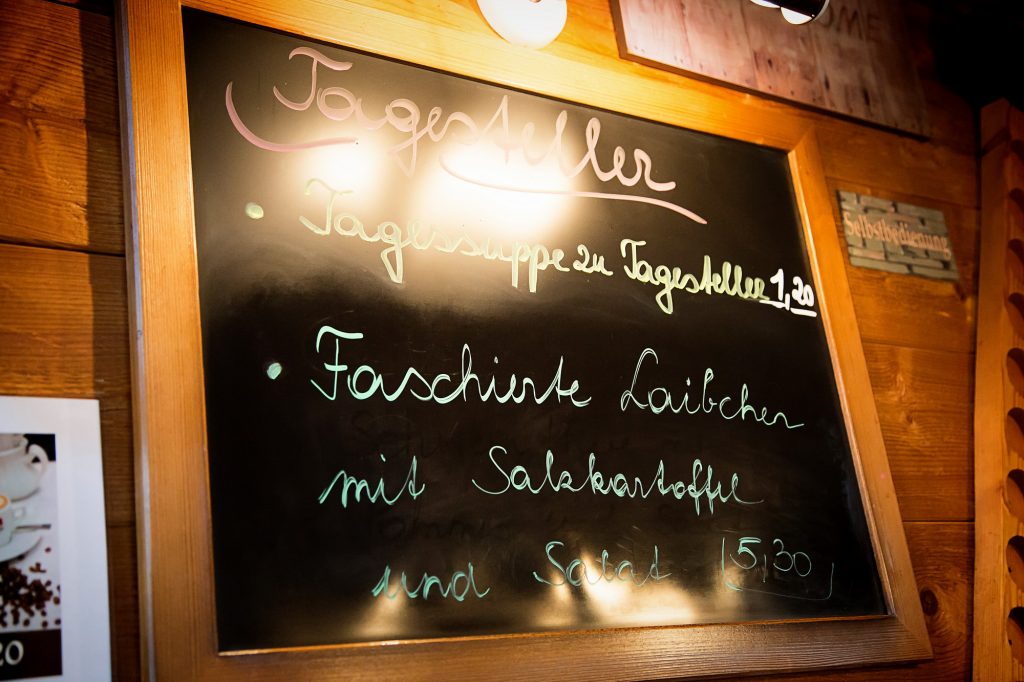 OME
Tagesteller
Selbstbedienung
• Tagessuppe zu Tagesteller 1,20
• Faschierte Laibchen
mit Salzkartoffel
und Salat 5,30
20